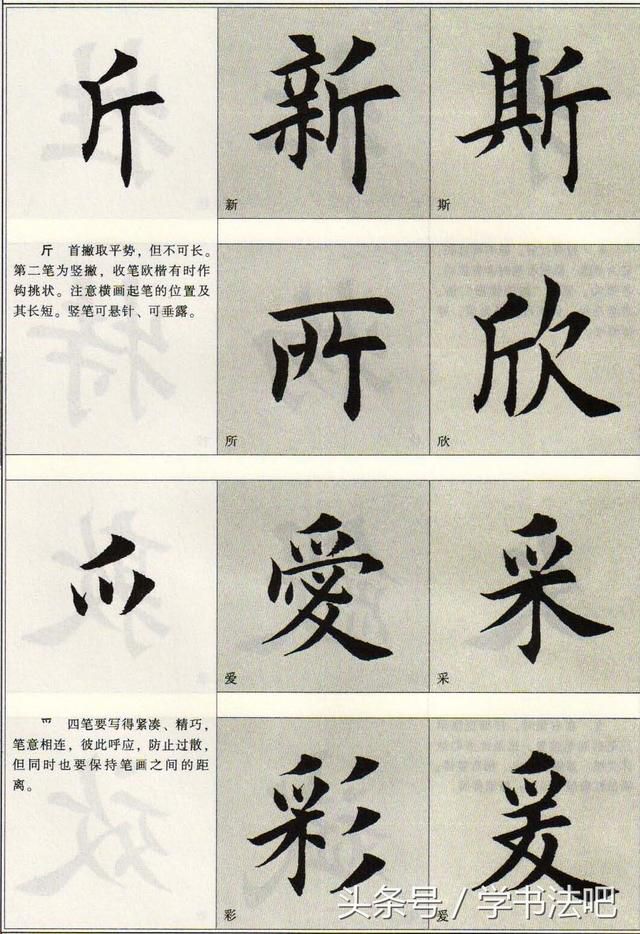 斤
新
斯
新
斯
斤 首撇取平势，但不可长。
第二笔为竖撇，收笔欧楷有时作
钩挑状。注意横画起笔的位置及
其长短。竖笔可悬针、可垂露。
所
欣
所
欣
爫
愛
采
爱
采
爫 四笔要写得紧凑、精巧，
笔意相连，彼此呼应，防止过散，
但同时也要保持笔画之间的距
离。
彩
爰
彩
爰
头条号／学书法吧